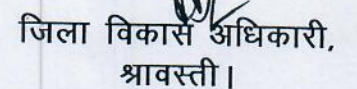 जिला विकास अधिकारी,
श्रावस्ती।